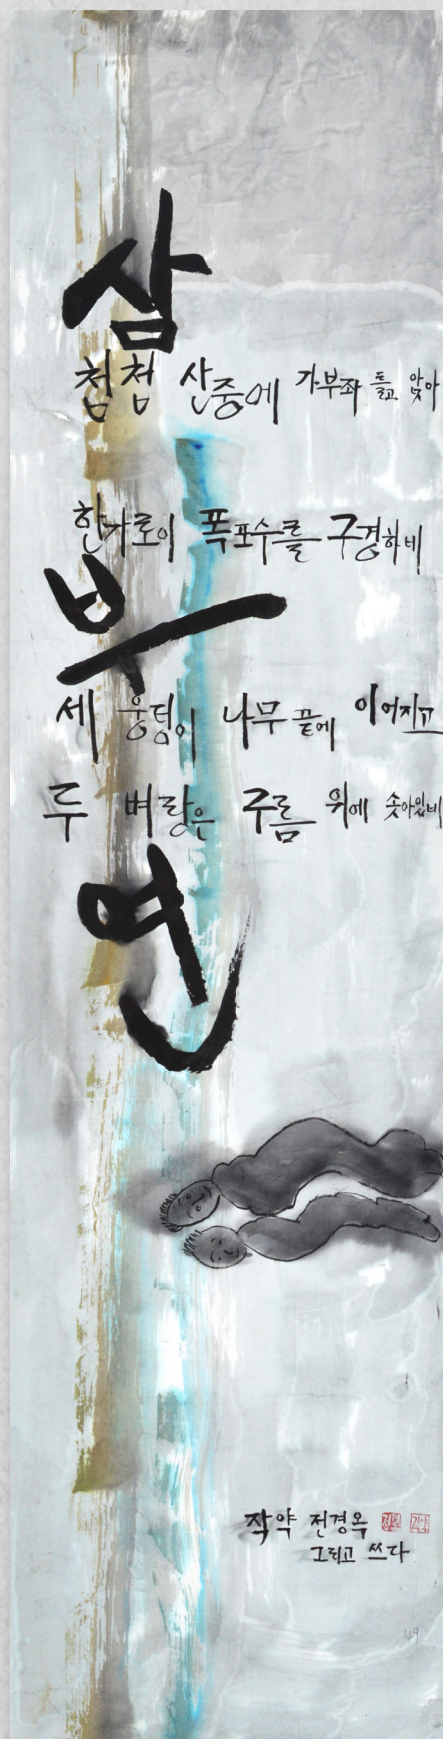 삼
첩첩 산중에 가부좌 틀고 앉아
한가로이 폭포수를 구경하네
부
세 웅덩이 나무 끝에 이어지고
두 벼랑은 구름 위에 솟아있네
연
작약 전경옥
그리고 쓰다
49